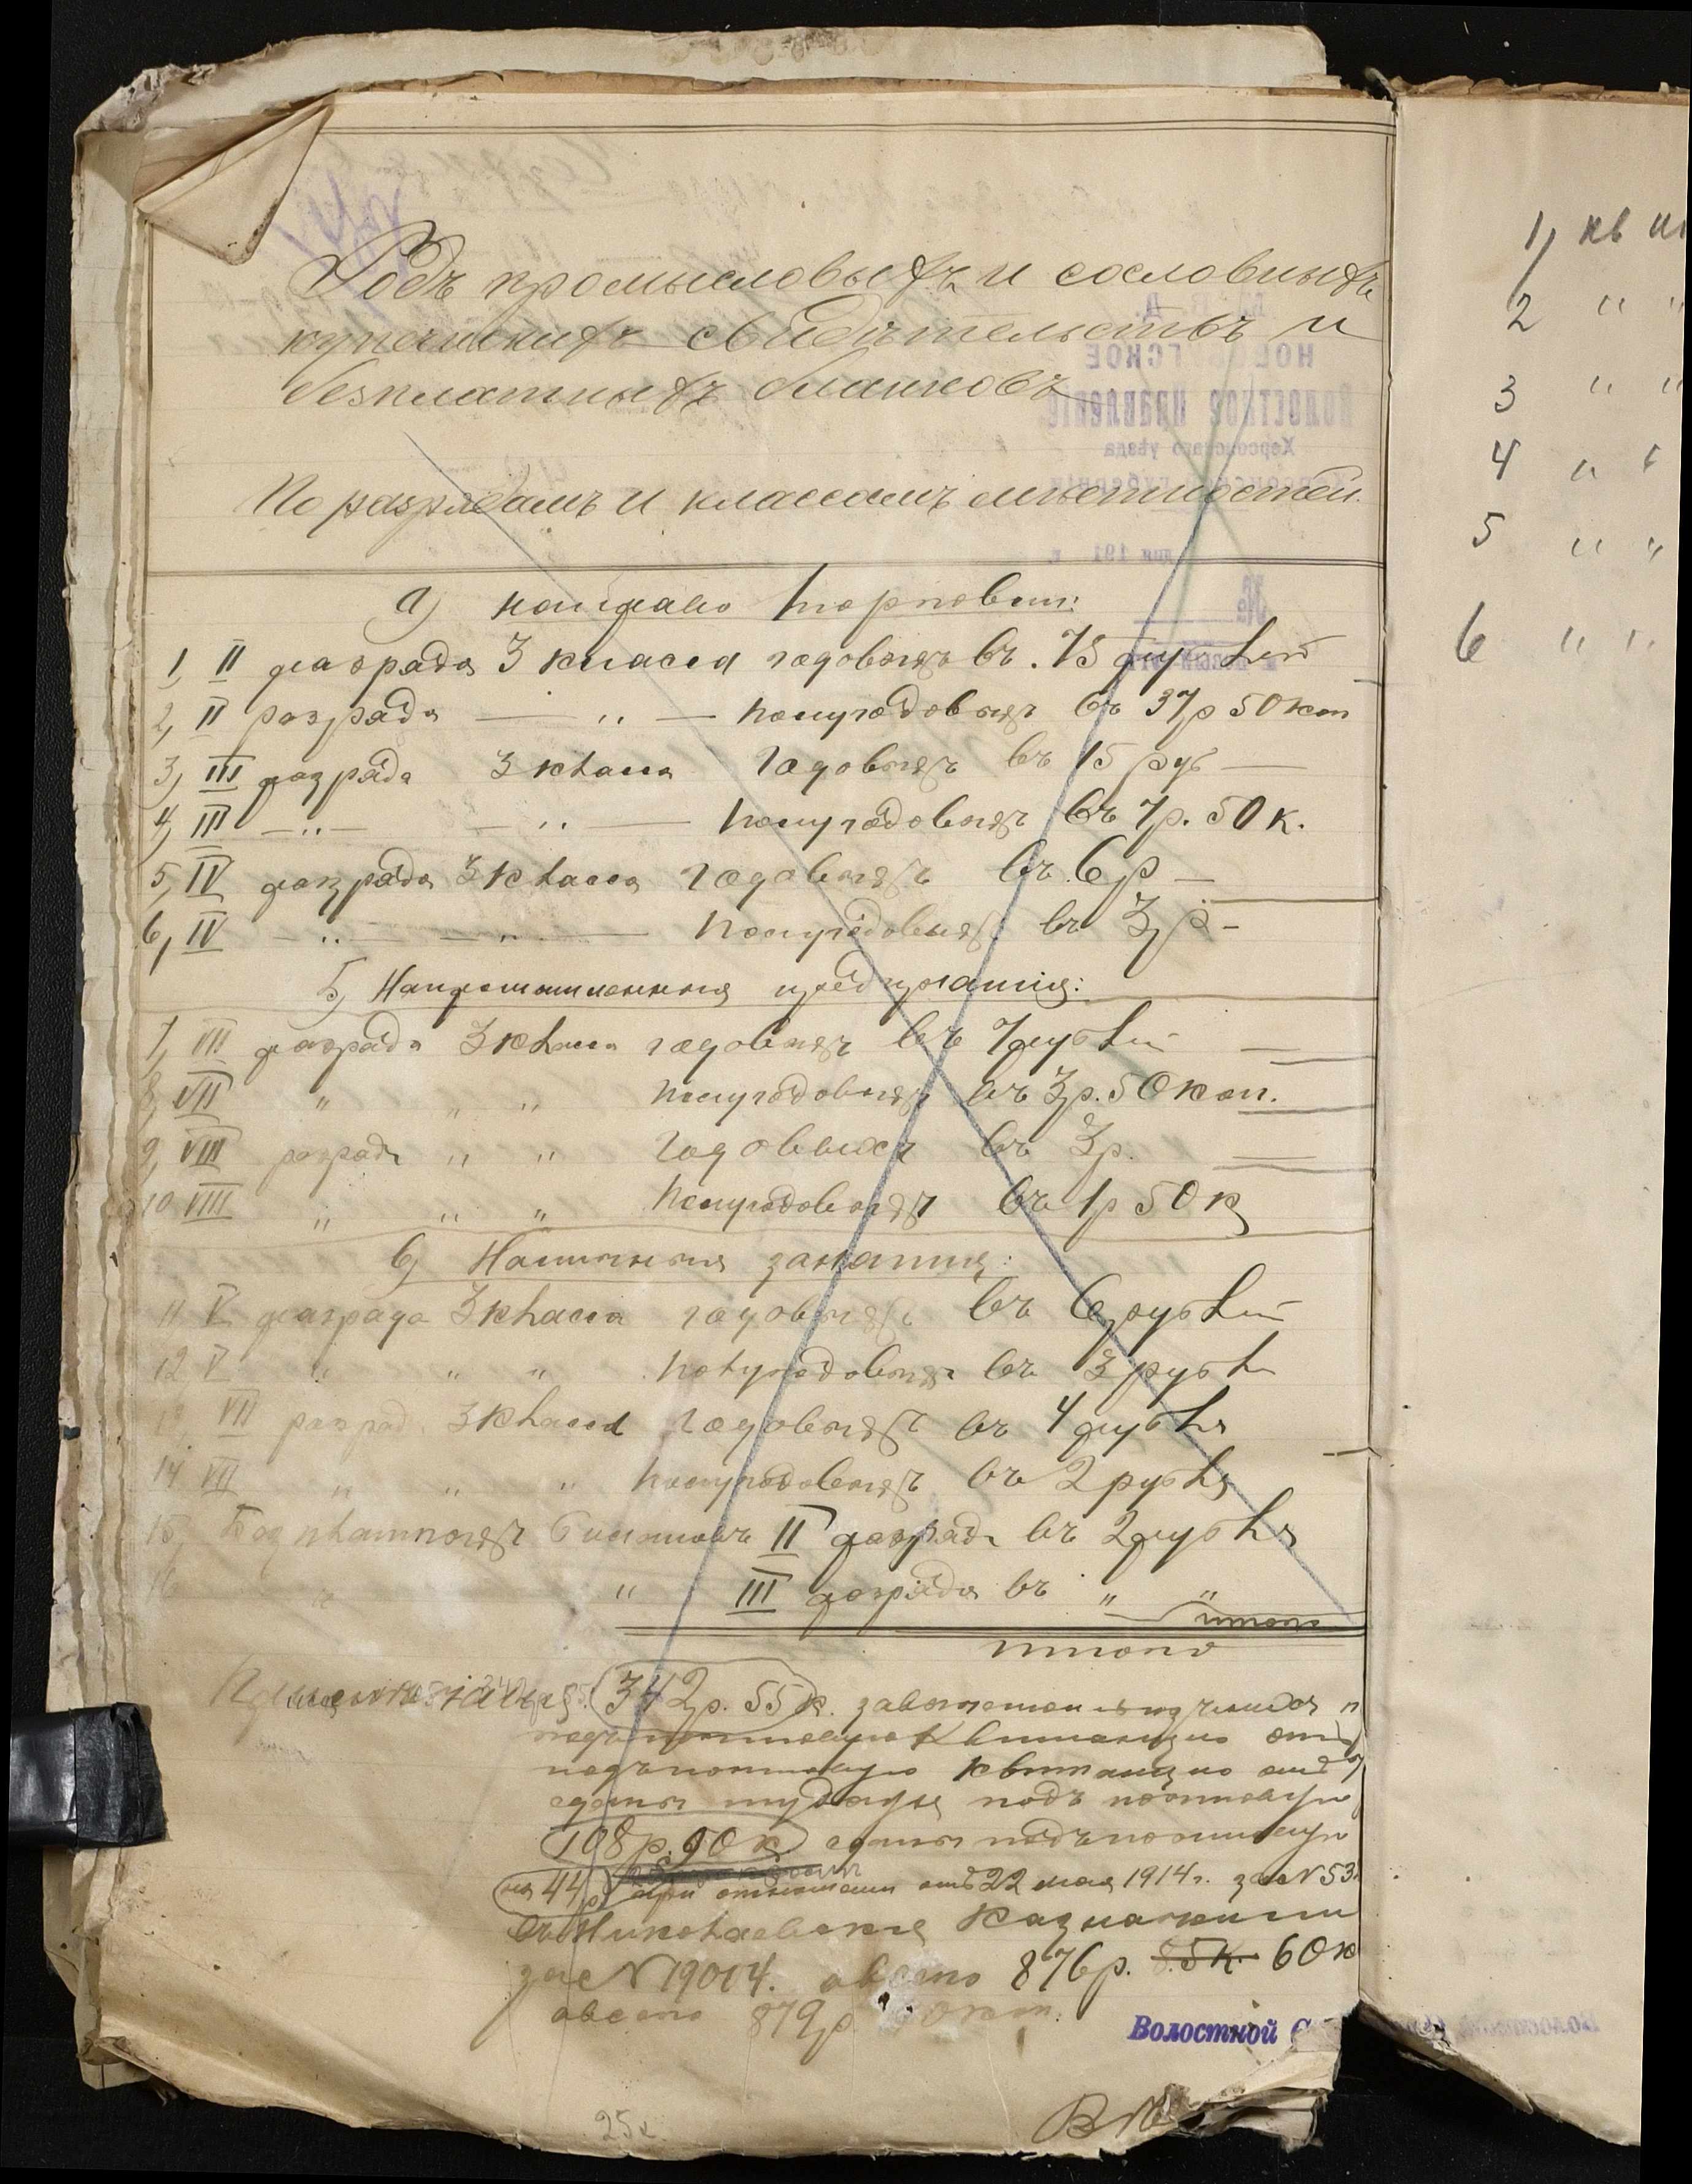 Родъ промысловыхъ и сословныхъ
купеческихъ свидѣтельствъ и
безплатныхъ бланковъ
По разрядамъ и классамъ мѣстностей.
а) на право торговли:
1, II разряда 3 класса годовыхъ въ 75 рублей
2, II разряда — „ — полугодовыхъ въ 37р 50 коп
3, III разряда 3 класса годовыхъ въ 15 руб —
4, III — „ — — „ — полугодовыхъ въ 7р. 50 к.
5, IV разряда 3 класса годовыхъ въ 6 р —
6, IV — „ — — „ — полугодовыхъ въ 3 р —
Б, На промышленныя предпріятія:
7, VII разряда 3 класса годовыхъ въ 7 рублей
8, VII „ „ „ полугодовыхъ въ 3р. 50 коп.
9, VIII разряда „ „ годовыхъ въ 3р.
10 VIII „ „ „ полугодовыхъ въ 1р 50 к
в) На личныя занятія:
11 V разряда 3 класса годовыхъ въ 6 рублей
12, V „ „ „ полугодовыхъ въ 3 рубл
13, VII разряд. 3 класса годовыхъ въ 4 рубля
14 VII „ „ „ полугодовыхъ въ 2 рубля
15, Безплатныхъ бланковъ II разряда въ 2 рубля
16 „ „ III разряда въ „ „
итого
итого
342р. 55 к.
квитанцію
подъ почтовую квитанцію
сданы подъ почтовую
108 р. 90 к сданы подъ почтовую
на 44 р при отношеніи отъ 22 мая 1914 г. за № 53
въ Николаевское Казначейст
за № 19014. всего 876р. 60 к
всего 879 р
Волостной С
25к
1, кв
2 „ „
3 „ „
4 „ „
5 „ „
6 „ „